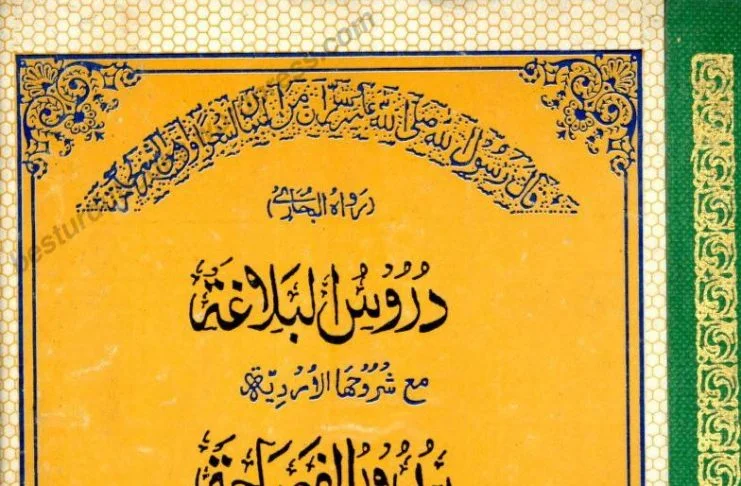 قال رسول الله صلى الله عليه وسلم ان من البيان لسحرا وان من الشعر لحكمة
(رواه البخاري)
دُرُوسُ البَلَاغَةِ
مع شُرُوحِهَا الأُرْدِيَّة
الفصاحة